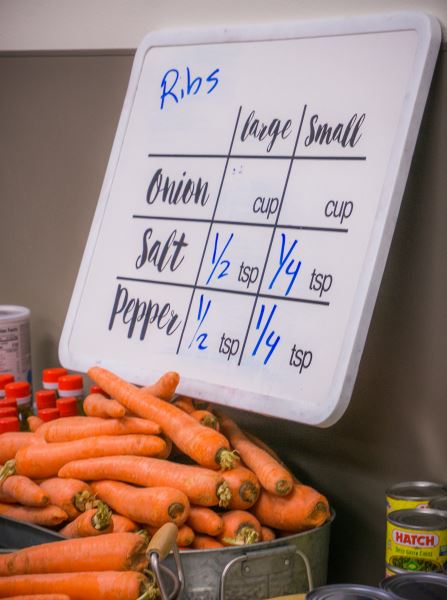 Ribs
large small
Onion cup cup
Salt 1/2 tsp 1/4 tsp
Pepper 1/2 tsp 1/4 tsp
HATCH